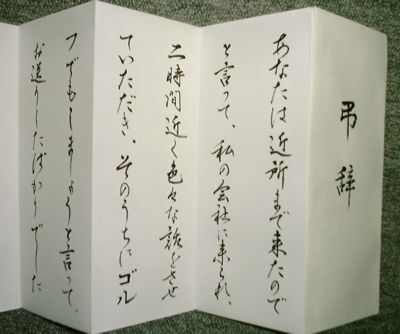 弔辞
あなたは近所まで来たので
と言って、私の会社に来られ、
二時間近く色々な話をさせ
ていただき、そのうちにゴル
フでもしましょうと言って、
お送りしたばかりでした